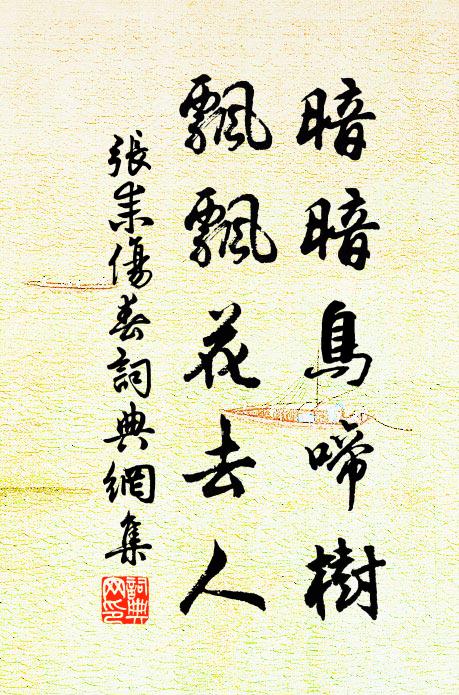 暗暗鳥啼樹
飄飄花去人
張耒傷春詞典網集
詞典
網印